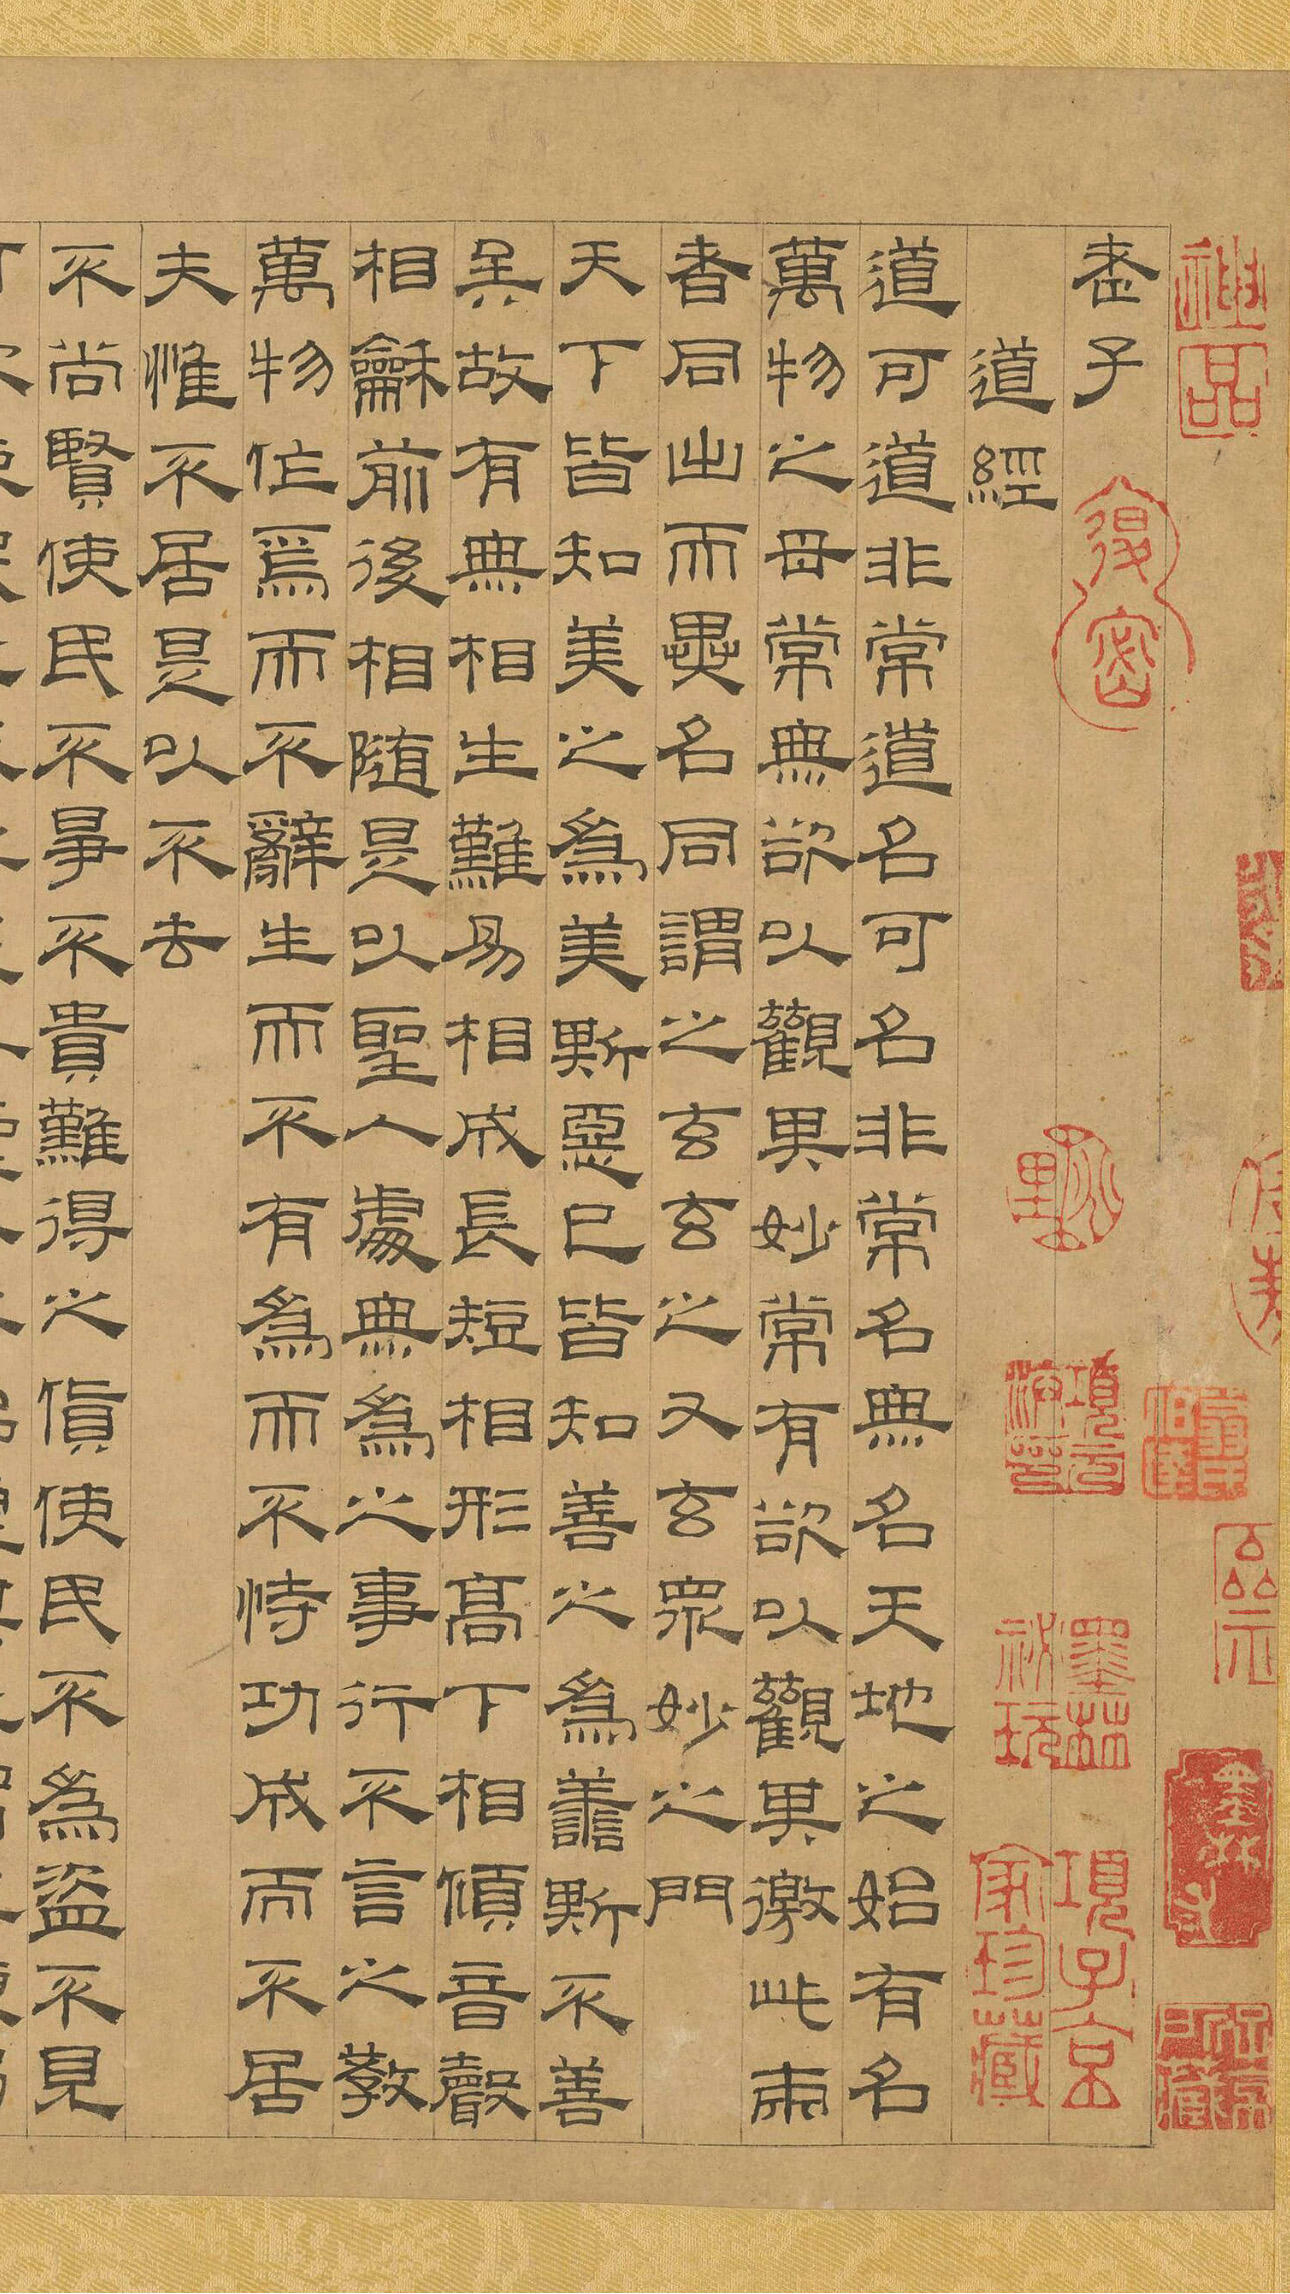 神品
老子
道經
項子京家珍藏
墨林祕玩
道可道非常道名可名非常名無名天地之始有名
萬物之母常無欲以觀其妙常有欲以觀其徼此兩
者同出而異名同謂之玄玄之又玄眾妙之門
天下皆知美之為美斯惡已皆知善之為善斯不善
矣故有無相生難易相成長短相形高下相傾音聲
相龢前後相隨是以聖人處無為之事行不言之教
萬物作焉而不辭生而不有為而不恃功成而不居
夫惟不居是以不去
不尚賢使民不爭不貴難得之貨使民不為盜不見